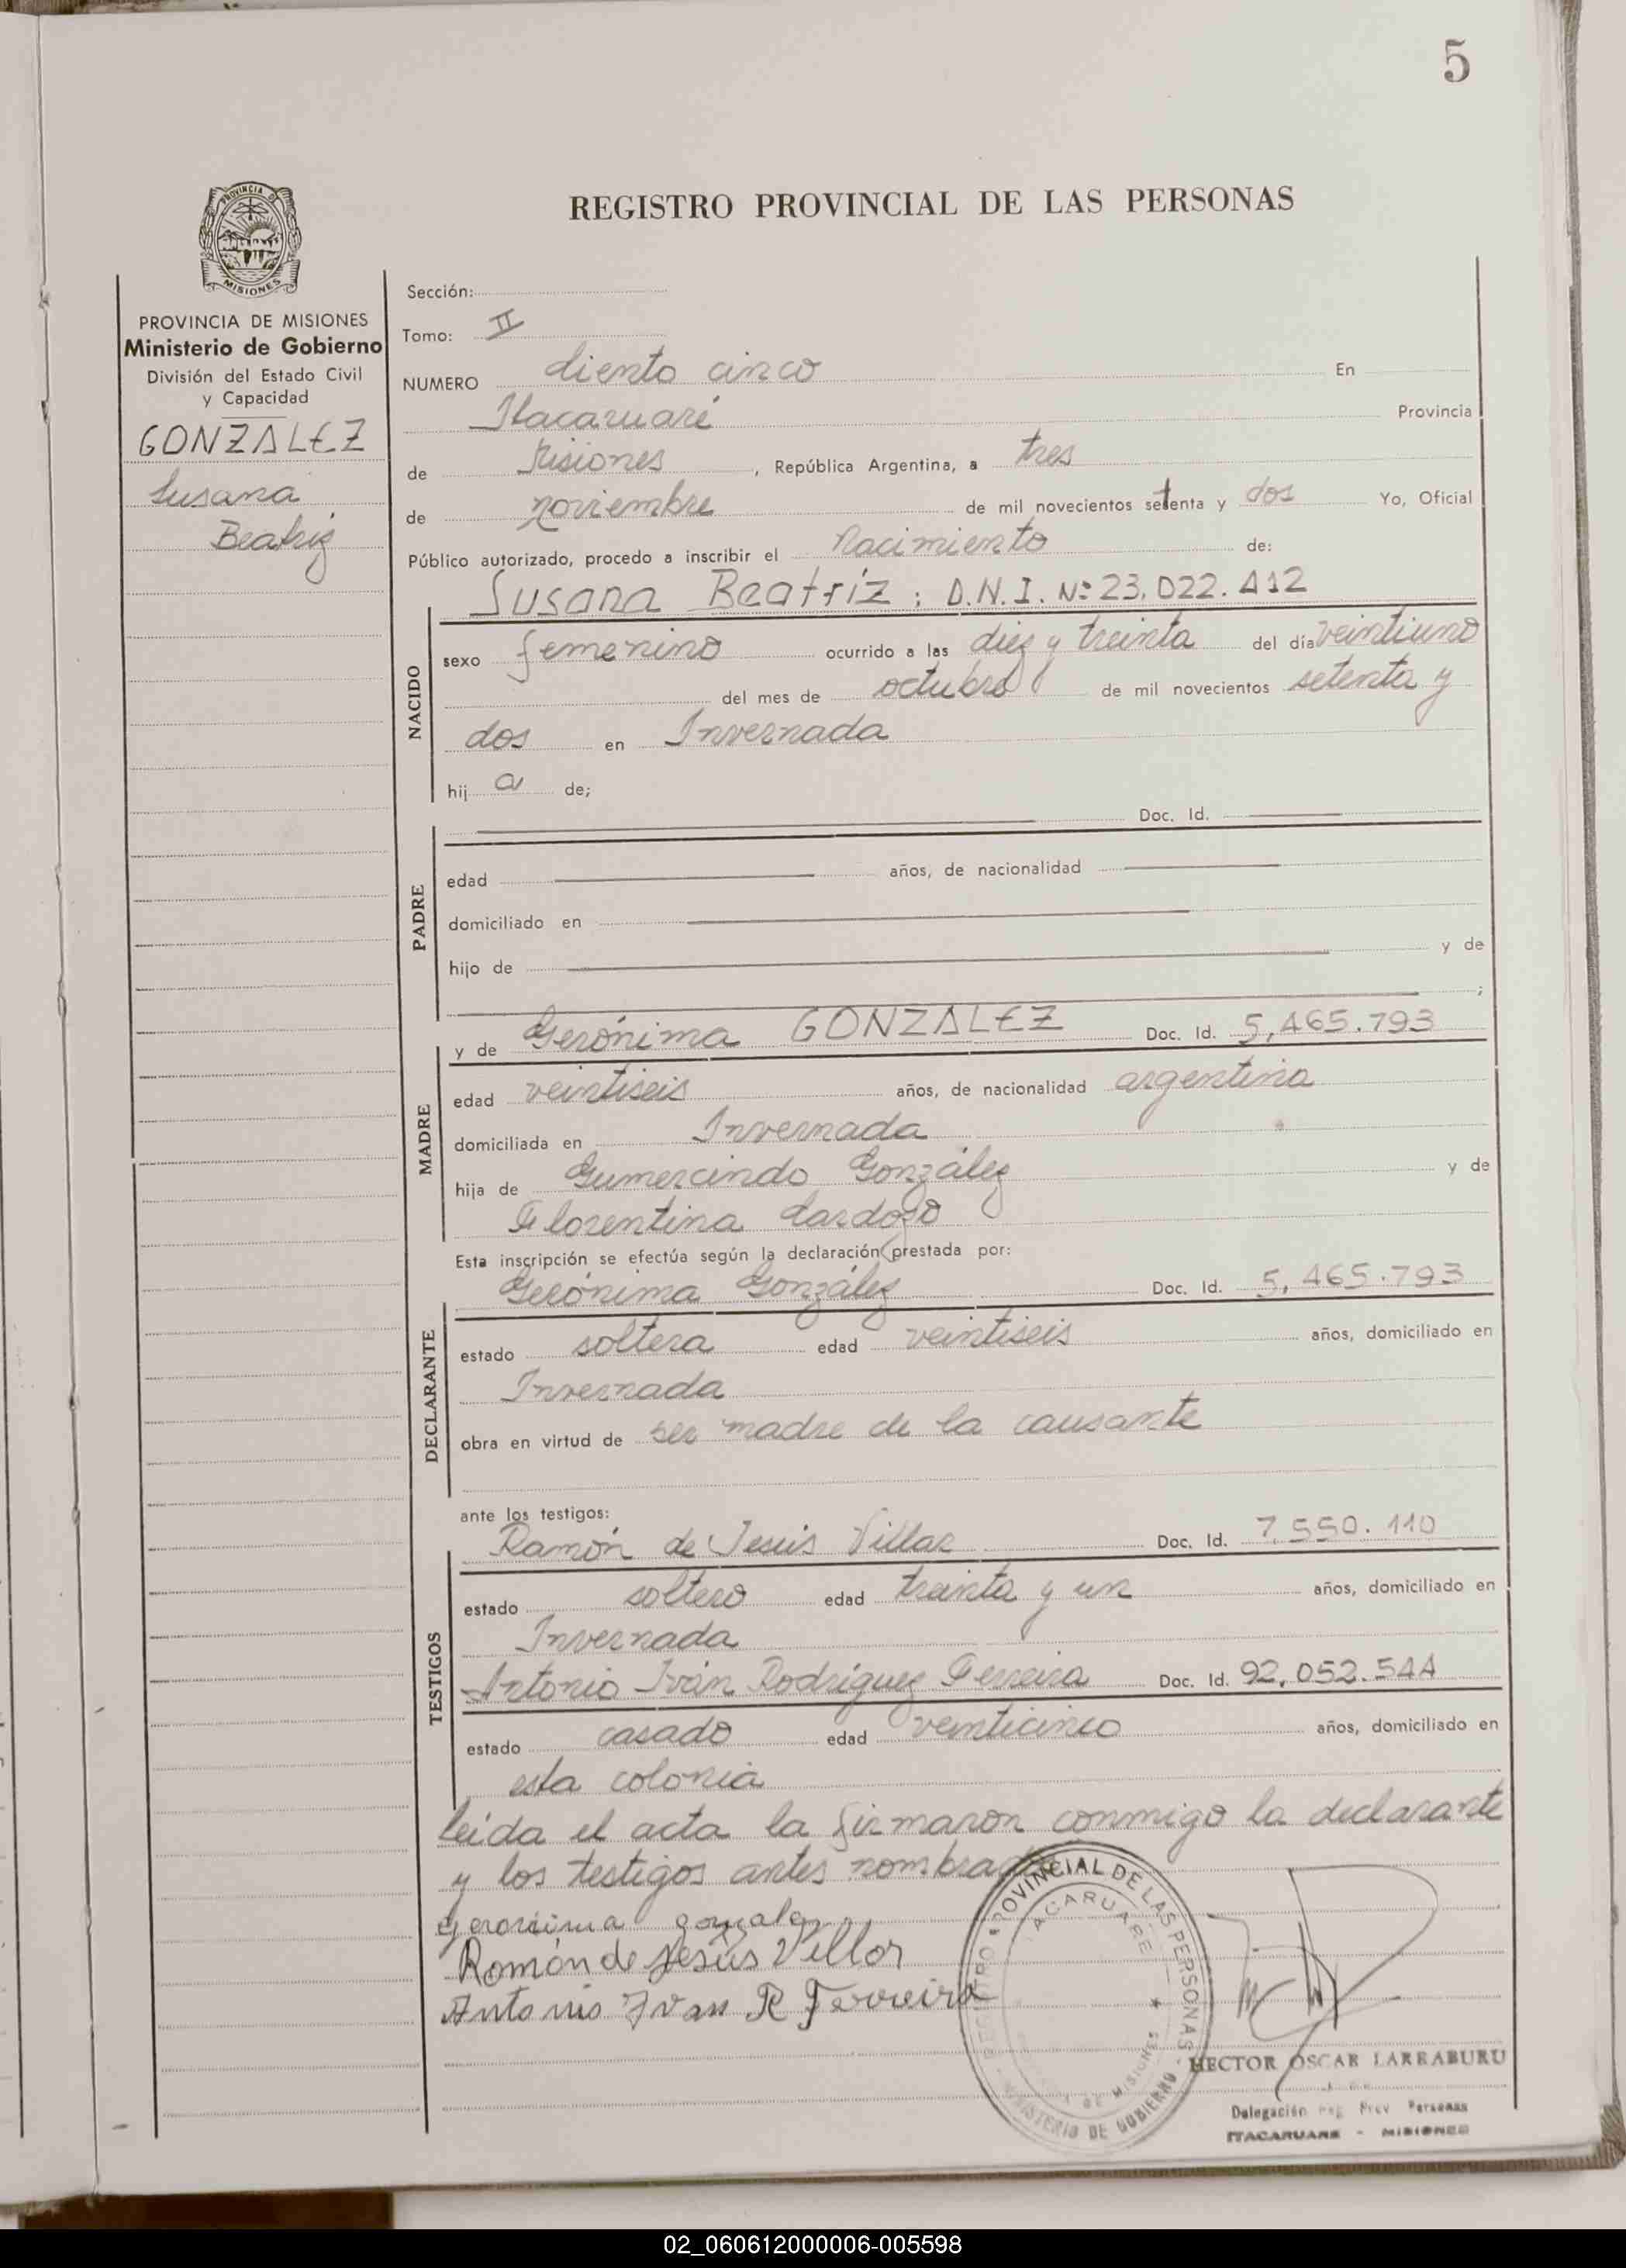 5
REGISTRO PROVINCIAL DE LAS PERSONAS
PROVINCIA DE
MISIONES
PROVINCIA DE MISIONES
Ministerio de Gobierno
División del Estado Civil
y Capacidad
GONZALEZ
Susana
Beatriz
Sección:
Tomo: II
NUMERO Ciento cinco En
Itacaruaré Provincia
de Misiones , República Argentina, a tres
de noviembre de mil novecientos setenta y dos Yo, Oficial
Público autorizado, procedo a inscribir el Nacimiento de:
Susana Beatríz ; D.N.I. Nº 23.022.412
NACIDO
sexo femenino ocurrido a las diez y treinta del día veintiuno
del mes de octubre de mil novecientos setenta y
dos en Invernada
hij a de;
Doc. Id.
PADRE
edad años, de nacionalidad
domiciliado en
hijo de y de
;
MADRE
y de Gerónima GONZALEZ Doc. Id. 5,465.793
edad veintiseis años, de nacionalidad argentina
domiciliada en Invernada
hija de Gumercindo González y de
Florentina Cardozo
Esta inscripción se efectúa según la declaración prestada por:
Gerónima González Doc. Id. 5,465.793
DECLARANTE
estado soltera edad veintiseis años, domiciliado en
Invernada
obra en virtud de ser madre de la causante
ante los testigos:
Ramón de Jesús Villar Doc. Id. 7,550.110
TESTIGOS
estado soltero edad treinta y un años, domiciliado en
Invernada
Antonio Iván Rodríguez Ferreira Doc. Id. 92,052.544
estado casado edad veinticinco años, domiciliado en
esta colonia
leída el acta la firmaron conmigo la declarante
y los testigos antes nombrados
Geronima gonzalez
Ramón de Jesús Villar
Antonio Ivan R Ferreira
REGISTRO PROVINCIAL DE LAS PERSONAS
ITACARUARE
DE MISIONES
MINISTERIO DE GOBIERNO
HECTOR OSCAR LARRABURU
Delegación Reg. Prov Personas
ITACARUARE - MISIONES
02_060612000006-005598